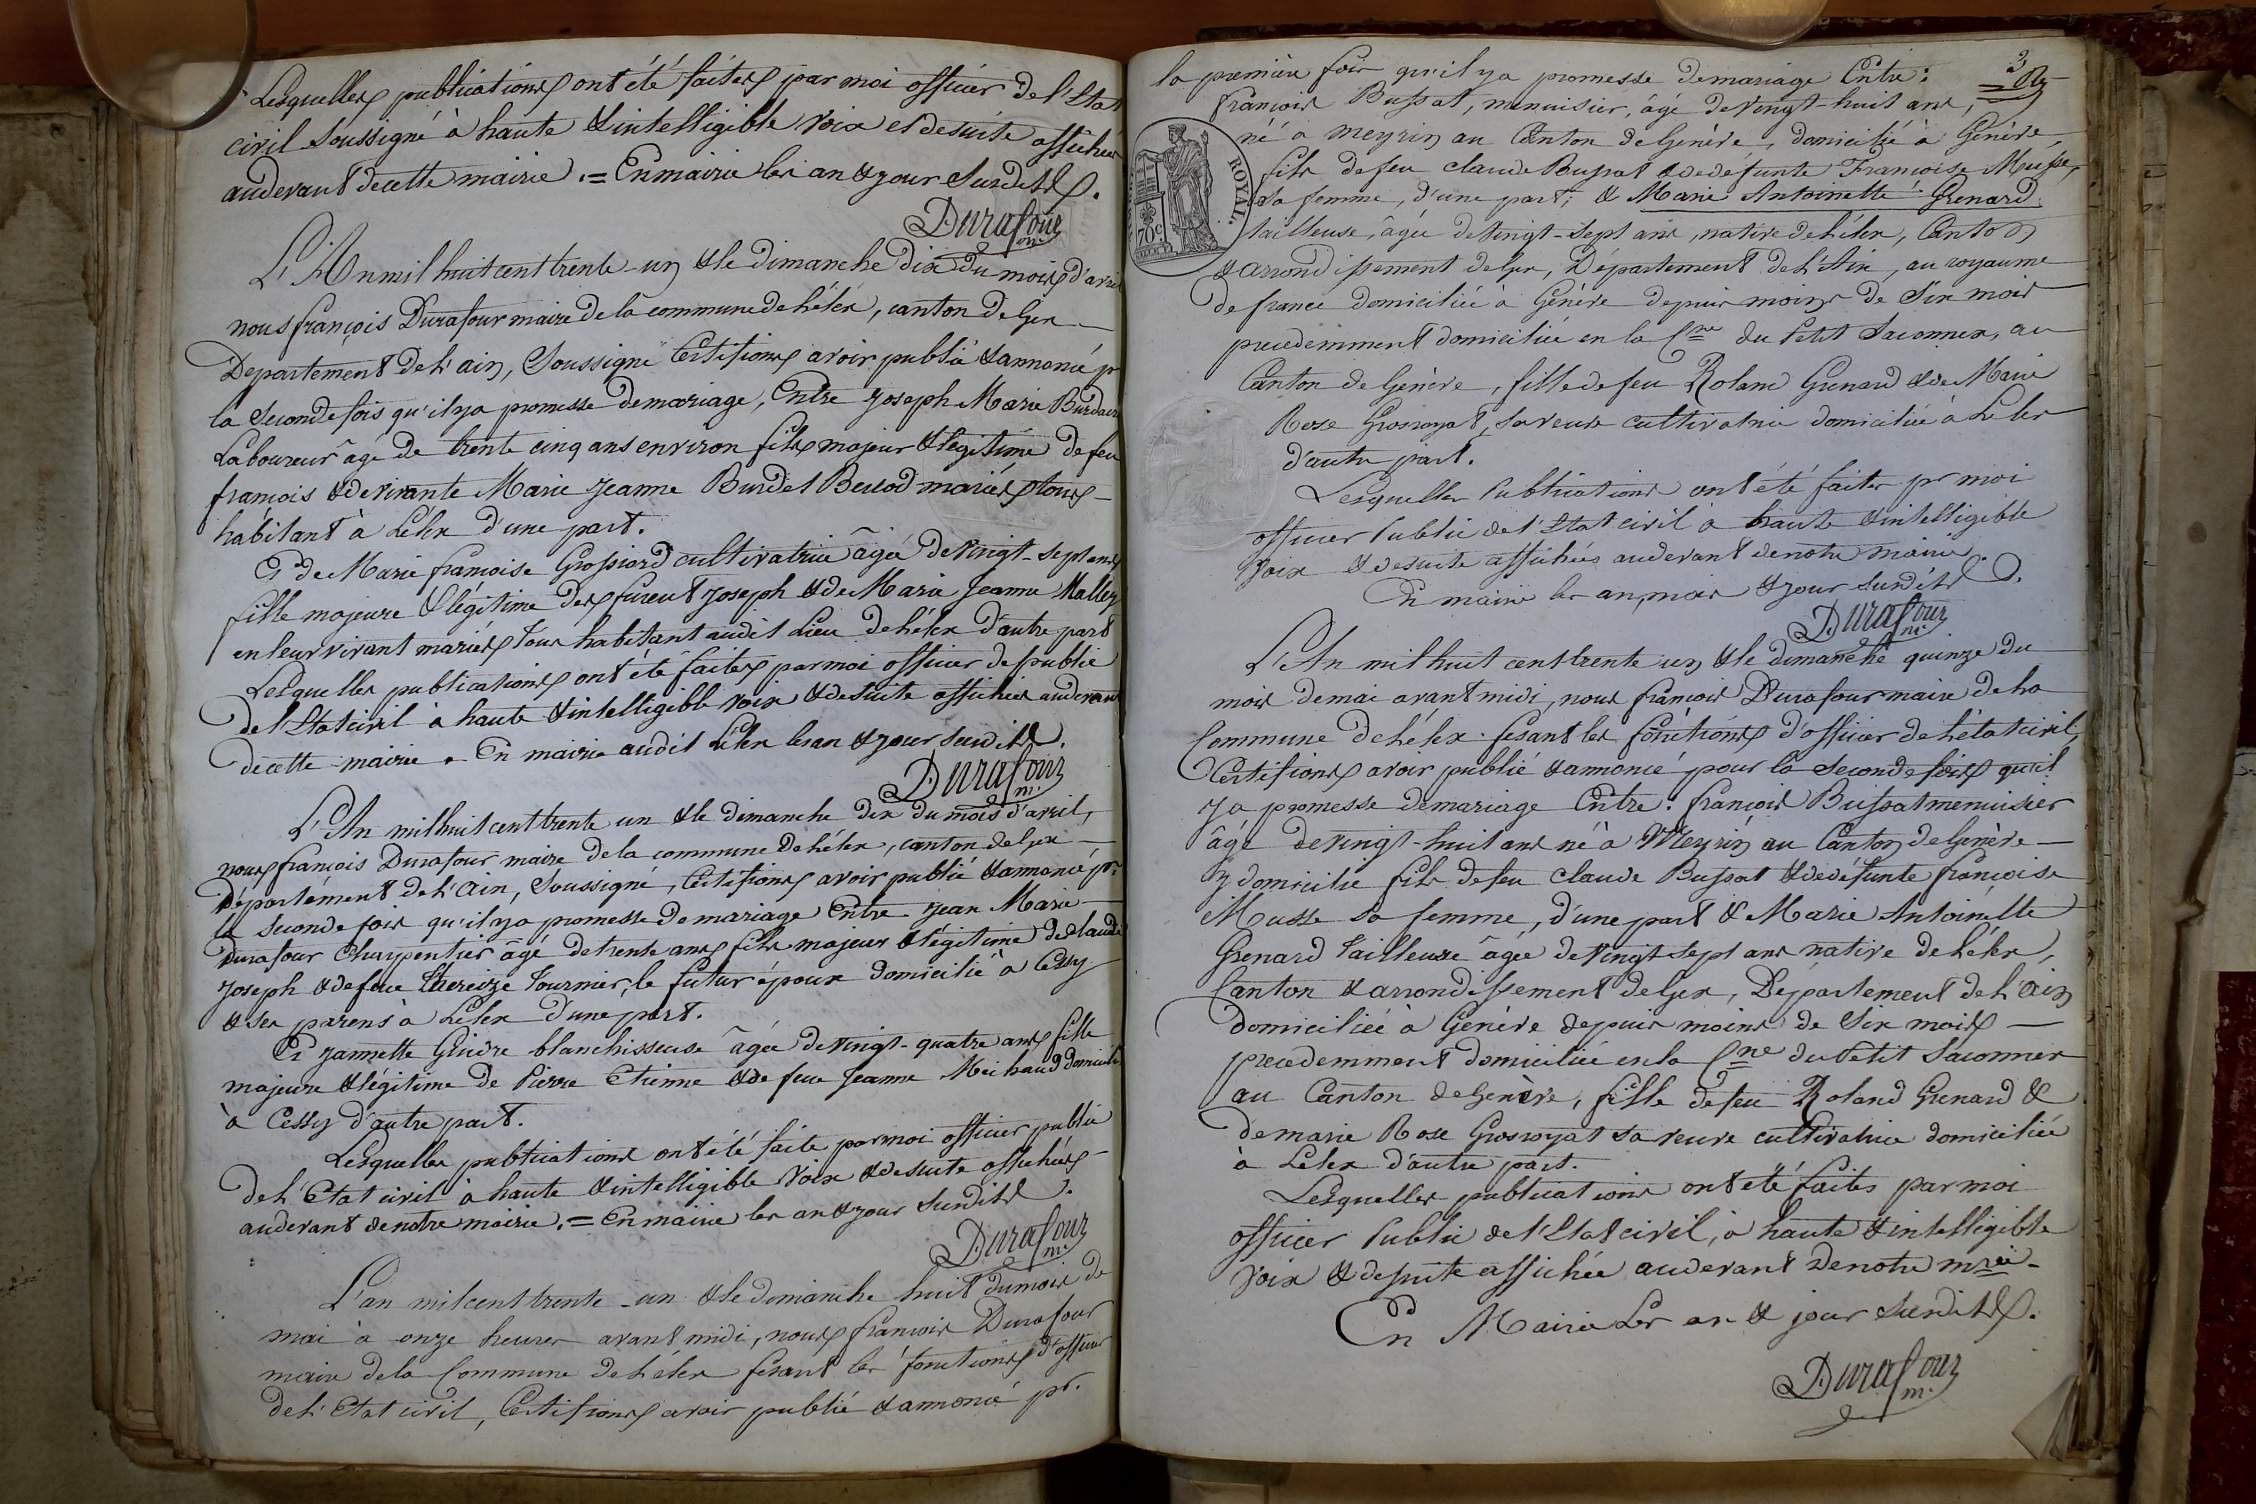 Lesquelles publications ont été faites par moi officier de l'Etat
civil soussigné à haute & intelligible voix et de suite affichées
audevant de cette mairie .= En mairie les an & jour susdits.
Durafour
m.
L'An mil huit cent trente-un & le dimanche dix du mois d'avril
nous françois Durafour maire de la commune de Lélex, canton de Gex
Département de l'ain, Soussigné Certifions avoir publié & annoncé pr
la Seconde fois qu'il y a promesse de mariage, Entre Joseph Marie
Laboureur âgé de trente cinq ans environ fils majeur & légitime de feu
françois & de vivante Marie Jeanne Burdet Benod mariés tous
habitant à Lélex d'une part.
Et de Marie françoise Grossiord cultivatrice âgée de vingt-sept ans
fille majeure & légitime des furent Joseph & de Marie Jeanne Malley
en leur vivant mariés tous habitant audit Lieu de Lélex d'autre part
Lesquelles publications ont été faites par moi officier de publie
de l'Etat civil à haute & intelligible voix & de suite affichées audevant
de cette mairie . En mairie audit Lélex les an & jour susdits.
Durafour
m.
L'An mil huit cent trente un & le dimanche dix du mois d'avril,
nous françois Durafour maire de la commune de Lélex, canton de Gex
Département de l'Ain, Soussigné, Certifions avoir publié & annoncé pr.
la seconde fois qu'il y a promesse de mariage Entre Jean Marie
Durafour Charpentier âgé de trente ans fils majeur & légitime de claude
Joseph & de feue Thereize Tournier, le futur époux domicilié à Cessy
& ses parens à Lélex d'une part.
Et Jannette Gindre blanchisseuse âgée de vingt-quatre ans fille
majeure & légitime de Pierre Etienne & de feue Jeanne Michaud
à Cessy d'autre part.
Lesquelles publications ont été faite par moi officier public
de l'Etat civil à haute & intelligible voix & de suite affichées
audevant de notre mairie .= En mairie les an & jour susdits.
Durafour
m.
L'an mil cent trente-un & le dimanche huit du mois de
mai à onze heures avant midi, nous françois Durafour
maire de la Commune de Lélex fesant les fonctions d'officier
de l'Etat civil, Certifions avoir publié & annoncé pr.
3
la première fois qu'il y a promesse de mariage Entre:
françois Bussat, menuisier, âgé de vingt-huit ans,
né à Meyrin au Canton de Genève, domicilié à Genève,
fils de feu claude Bussat & de défunte Françoise Musse,
sa femme, d'une part; & Marie Antoinette Grenard
tailleuse, âgée de vingt-sept ans, native de Lélex, Canton
& arrondissement de Gex, Département de l'Ain, au royaume
de france domiciliée à Genève depuis moins de Six mois
précédemment domiciliée en la Cne du Petit Saconnex, au
Canton de Genève, fille de feu Roland Grenard & de Marie
Rose Grosroyat, sa veuve cultivatrice domiciliée à Lélex
d'autre part.
Lesquelles Publications ont été faites pr moi
officier Public de l'Etat civil à haute & intelligible
voix & de suite affichées audevant de notre mairie.
En mairie les an, mois & jour susdits.
Durafour
m.
ROYAL.
70c
L'An mil huit cent trente un & le dimanche quinze du
mois de mai avant midi, nous françois Durafour maire de la
Commune de Lélex fesant les fonctions d'officier de l'état civil,
Certifions avoir publié & annoncé pour la seconde fois qu'il
y a promesse de mariage Entre: françois Bussat menuisier
âgé de vingt-huit ans né à Meyrin au Canton de Genève
y domicilié fils de feu claude Bussat & de défunte françoise
Musse sa femme, d'une part & Marie Antoinette
Grenard tailleuse âgée de vingt sept ans native de Lélex,
Canton & arrondissement de Gex, Département de l'Ain
domiciliée à Genève depuis moins de Six mois
précédemment domiciliée en la Cne du Petit Saconnex
au Canton de Genève, fille de feu Roland Grenard &
de marie Rose Grosroyat sa veuve cultivatrice domiciliée
à Lélex d'autre part.
Lesquelles publications ont été faites par moi
officier Public de l'Etat civil, à haute & intelligible
voix & de suite affichée audevant de notre mrie.
En Mairie Les an & jour susdits.
Durafour
m.